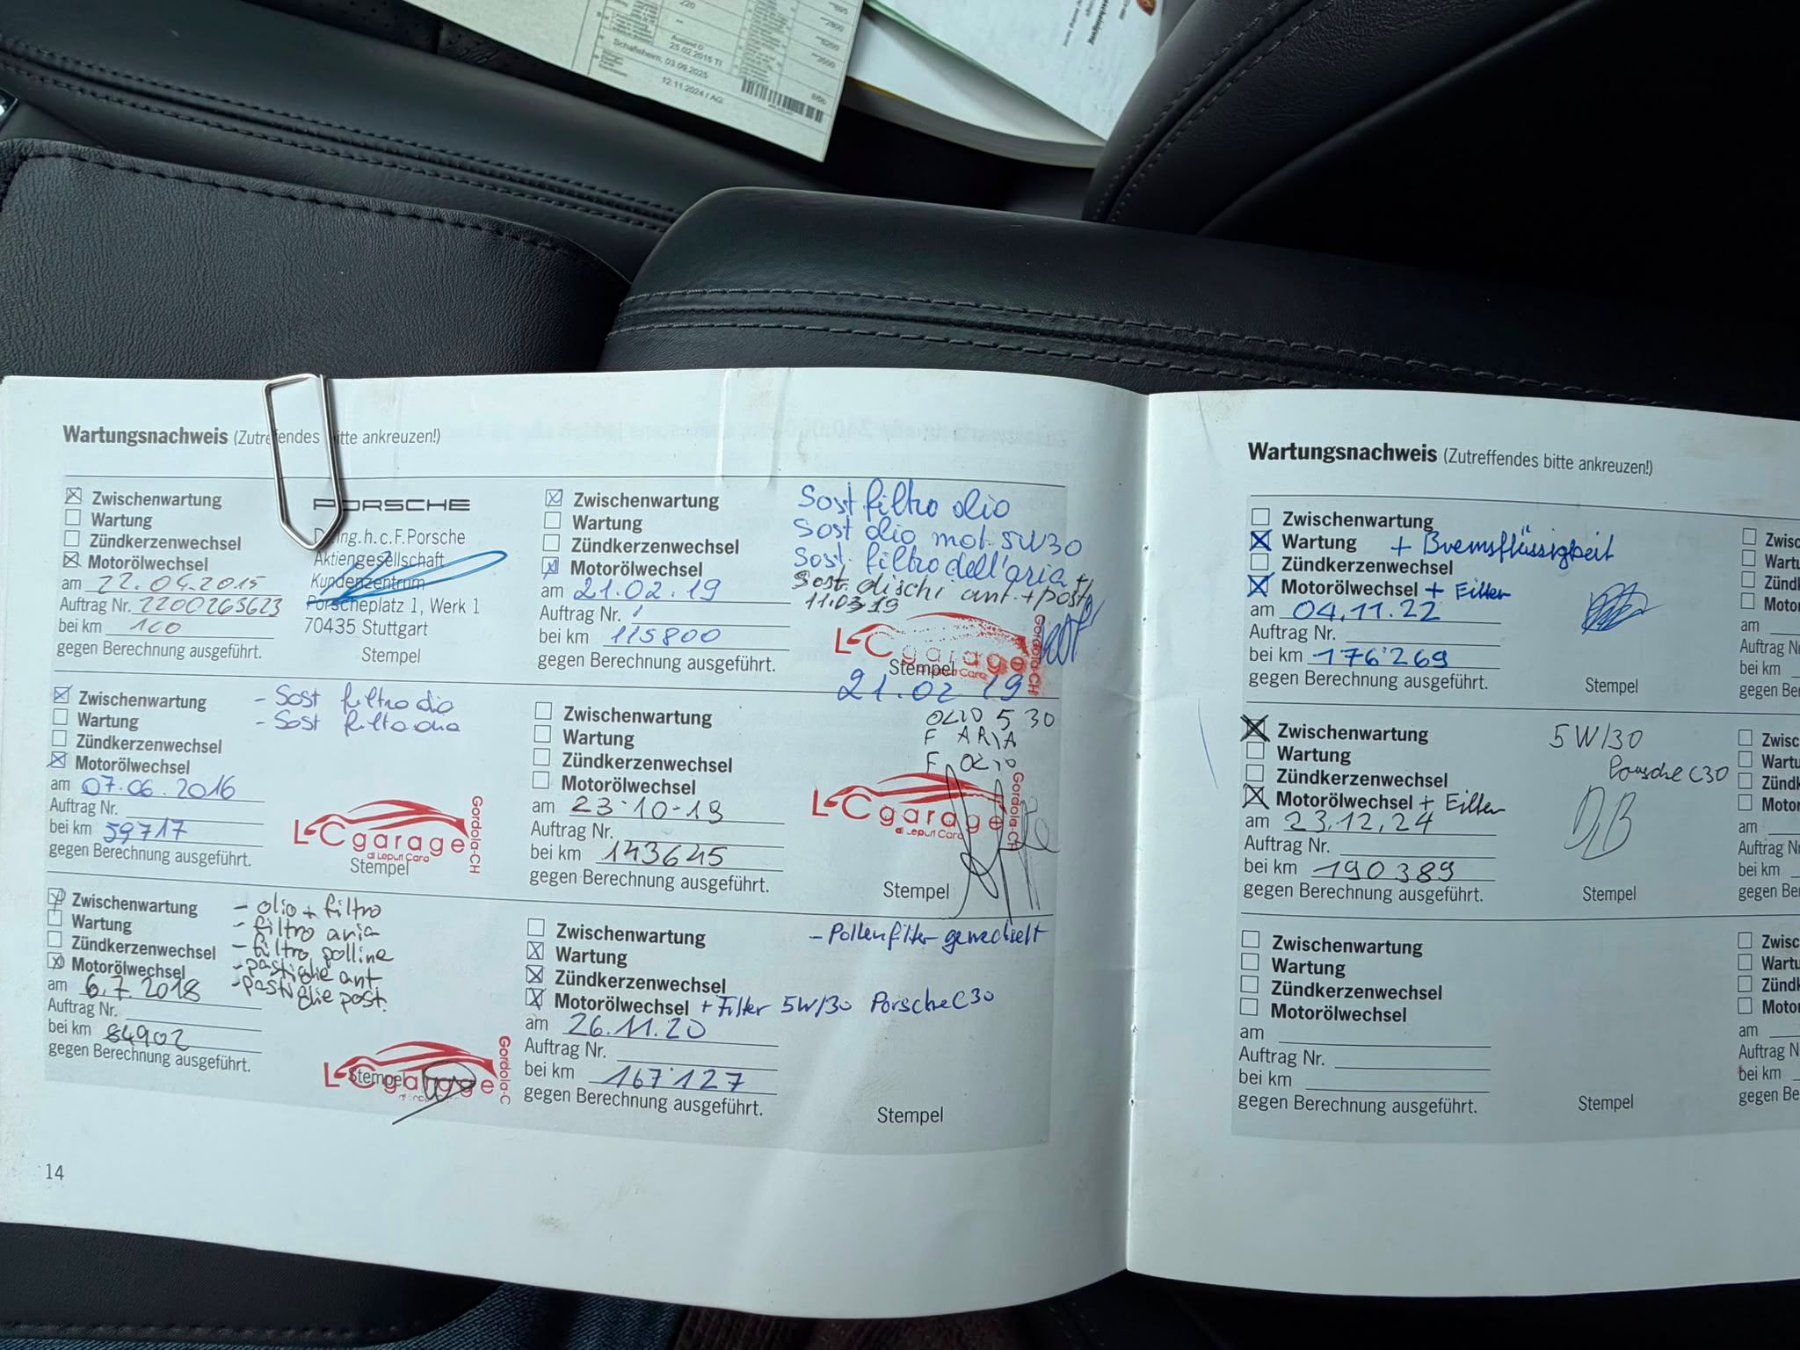 220
Ausland D
25.02.2015 TI
Schafisheim, 03.09.2025
12.11.2024 / AG
Wartungsnachweis (Zutreffendes bitte ankreuzen!)
Zwischenwartung
Wartung
Zündkerzenwechsel
Motorölwechsel
am 22.04.2015
Auftrag Nr. 2200265623
bei km 100
gegen Berechnung ausgeführt.
PORSCHE
Dr. Ing. h. c. F. Porsche
Aktiengesellschaft
Kundenzentrum
Porscheplatz 1, Werk 1
70435 Stuttgart
Stempel
Zwischenwartung
Wartung
Zündkerzenwechsel
Motorölwechsel
am 07.06.2016
Auftrag Nr.
bei km 59717
gegen Berechnung ausgeführt.
- Sost filtro olio
- Sost filtro aria
LC garage
di Lepuri Cara
Gordola-CH
Stempel
Zwischenwartung
Wartung
Zündkerzenwechsel
Motorölwechsel
am 6.7.2018
Auftrag Nr.
bei km 84902
gegen Berechnung ausgeführt.
- olio + filtro
- filtro aria
- filtro polline
- pastiglie ant
- pastiglie post.
LC garage
Gordola-C
Stempel
14
Zwischenwartung
Wartung
Zündkerzenwechsel
Motorölwechsel
am 21.02.19
Auftrag Nr. /
bei km 115800
gegen Berechnung ausgeführt.
Sost filtro olio
Sost olio mot. 5W30
Sost. filtro dell'aria +
Sost. dischi ant. + post
11.03.19
LC garage
Gordola-CH
Stempel
21.02.19
Zwischenwartung
Wartung
Zündkerzenwechsel
Motorölwechsel
am 23-10-19
Auftrag Nr.
bei km 143645
gegen Berechnung ausgeführt.
OLIO 5 30
F ARIA
F OLIO
LC garage
di Lepuri Cara
Gordola-CH
Stempel
Zwischenwartung
Wartung
Zündkerzenwechsel
Motorölwechsel + Filter 5W/30 Porsche C30
am 26.11.20
Auftrag Nr.
bei km 167'127
gegen Berechnung ausgeführt.
- Pollenfilter gewechselt
Stempel
Wartungsnachweis (Zutreffendes bitte ankreuzen!)
Zwischenwartung
Wartung + Bremsflüssigkeit
Zündkerzenwechsel
Motorölwechsel + Filter
am 04.11.22
Auftrag Nr.
bei km 176'269
gegen Berechnung ausgeführt.
Stempel
Zwischenwartung
Wartung
Zündkerzenwechsel
Motorölwechsel + Filter
am 23.12.24
Auftrag Nr.
bei km 190389
gegen Berechnung ausgeführt.
5W/30
Porsche C30
DB
Stempel
Zwischenwartung
Wartung
Zündkerzenwechsel
Motorölwechsel
am
Auftrag Nr.
bei km
gegen Berechnung ausgeführt.
Stempel
Zwisc
Wartu
Zünd
Moto
am
Auftrag N
bei km
gegen Be
Zwisc
Wartu
Zünd
Moto
am
Auftrag N
bei km
gegen Be
Zwisc
Wartu
Zünd
Moto
am
Auftrag N
bei km
gegen Be